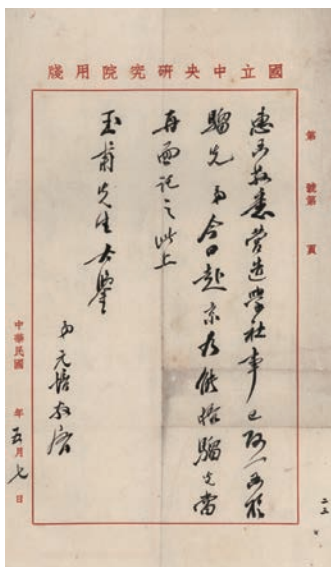 國立中央研究院用牋
第 號第 頁
惠函敬悉營造學社事已致一函於
騮先弟今日赴京如能晤騮先當
再面託之此上
玉甫先生大鑒
弟元培敬啓
中華民國 年五月七日
二三